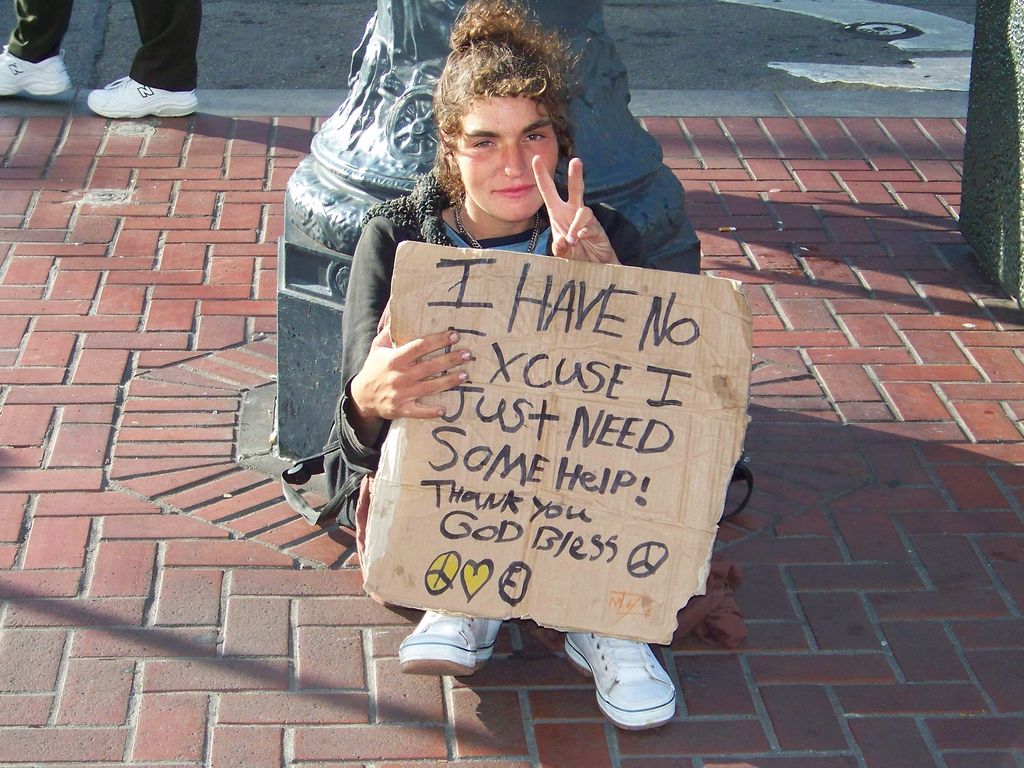 I HAVE NO
EXCUSE I
JUST NEED
SOME HELP!
THANK YOU
GOD BLESS
N